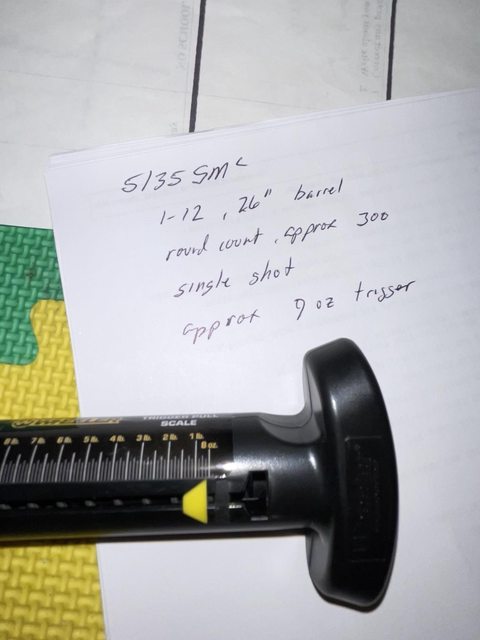 5135 GMC
1-12, 26" barrel
round count, approx 300
single shot
approx 9 oz trigger
WHEELER
TRIGGER PULL
SCALE
8 lb. 7 lb. 6 lb. 5 lb. 4 lb. 3 lb. 2 lb. 1 lb.
8 oz.